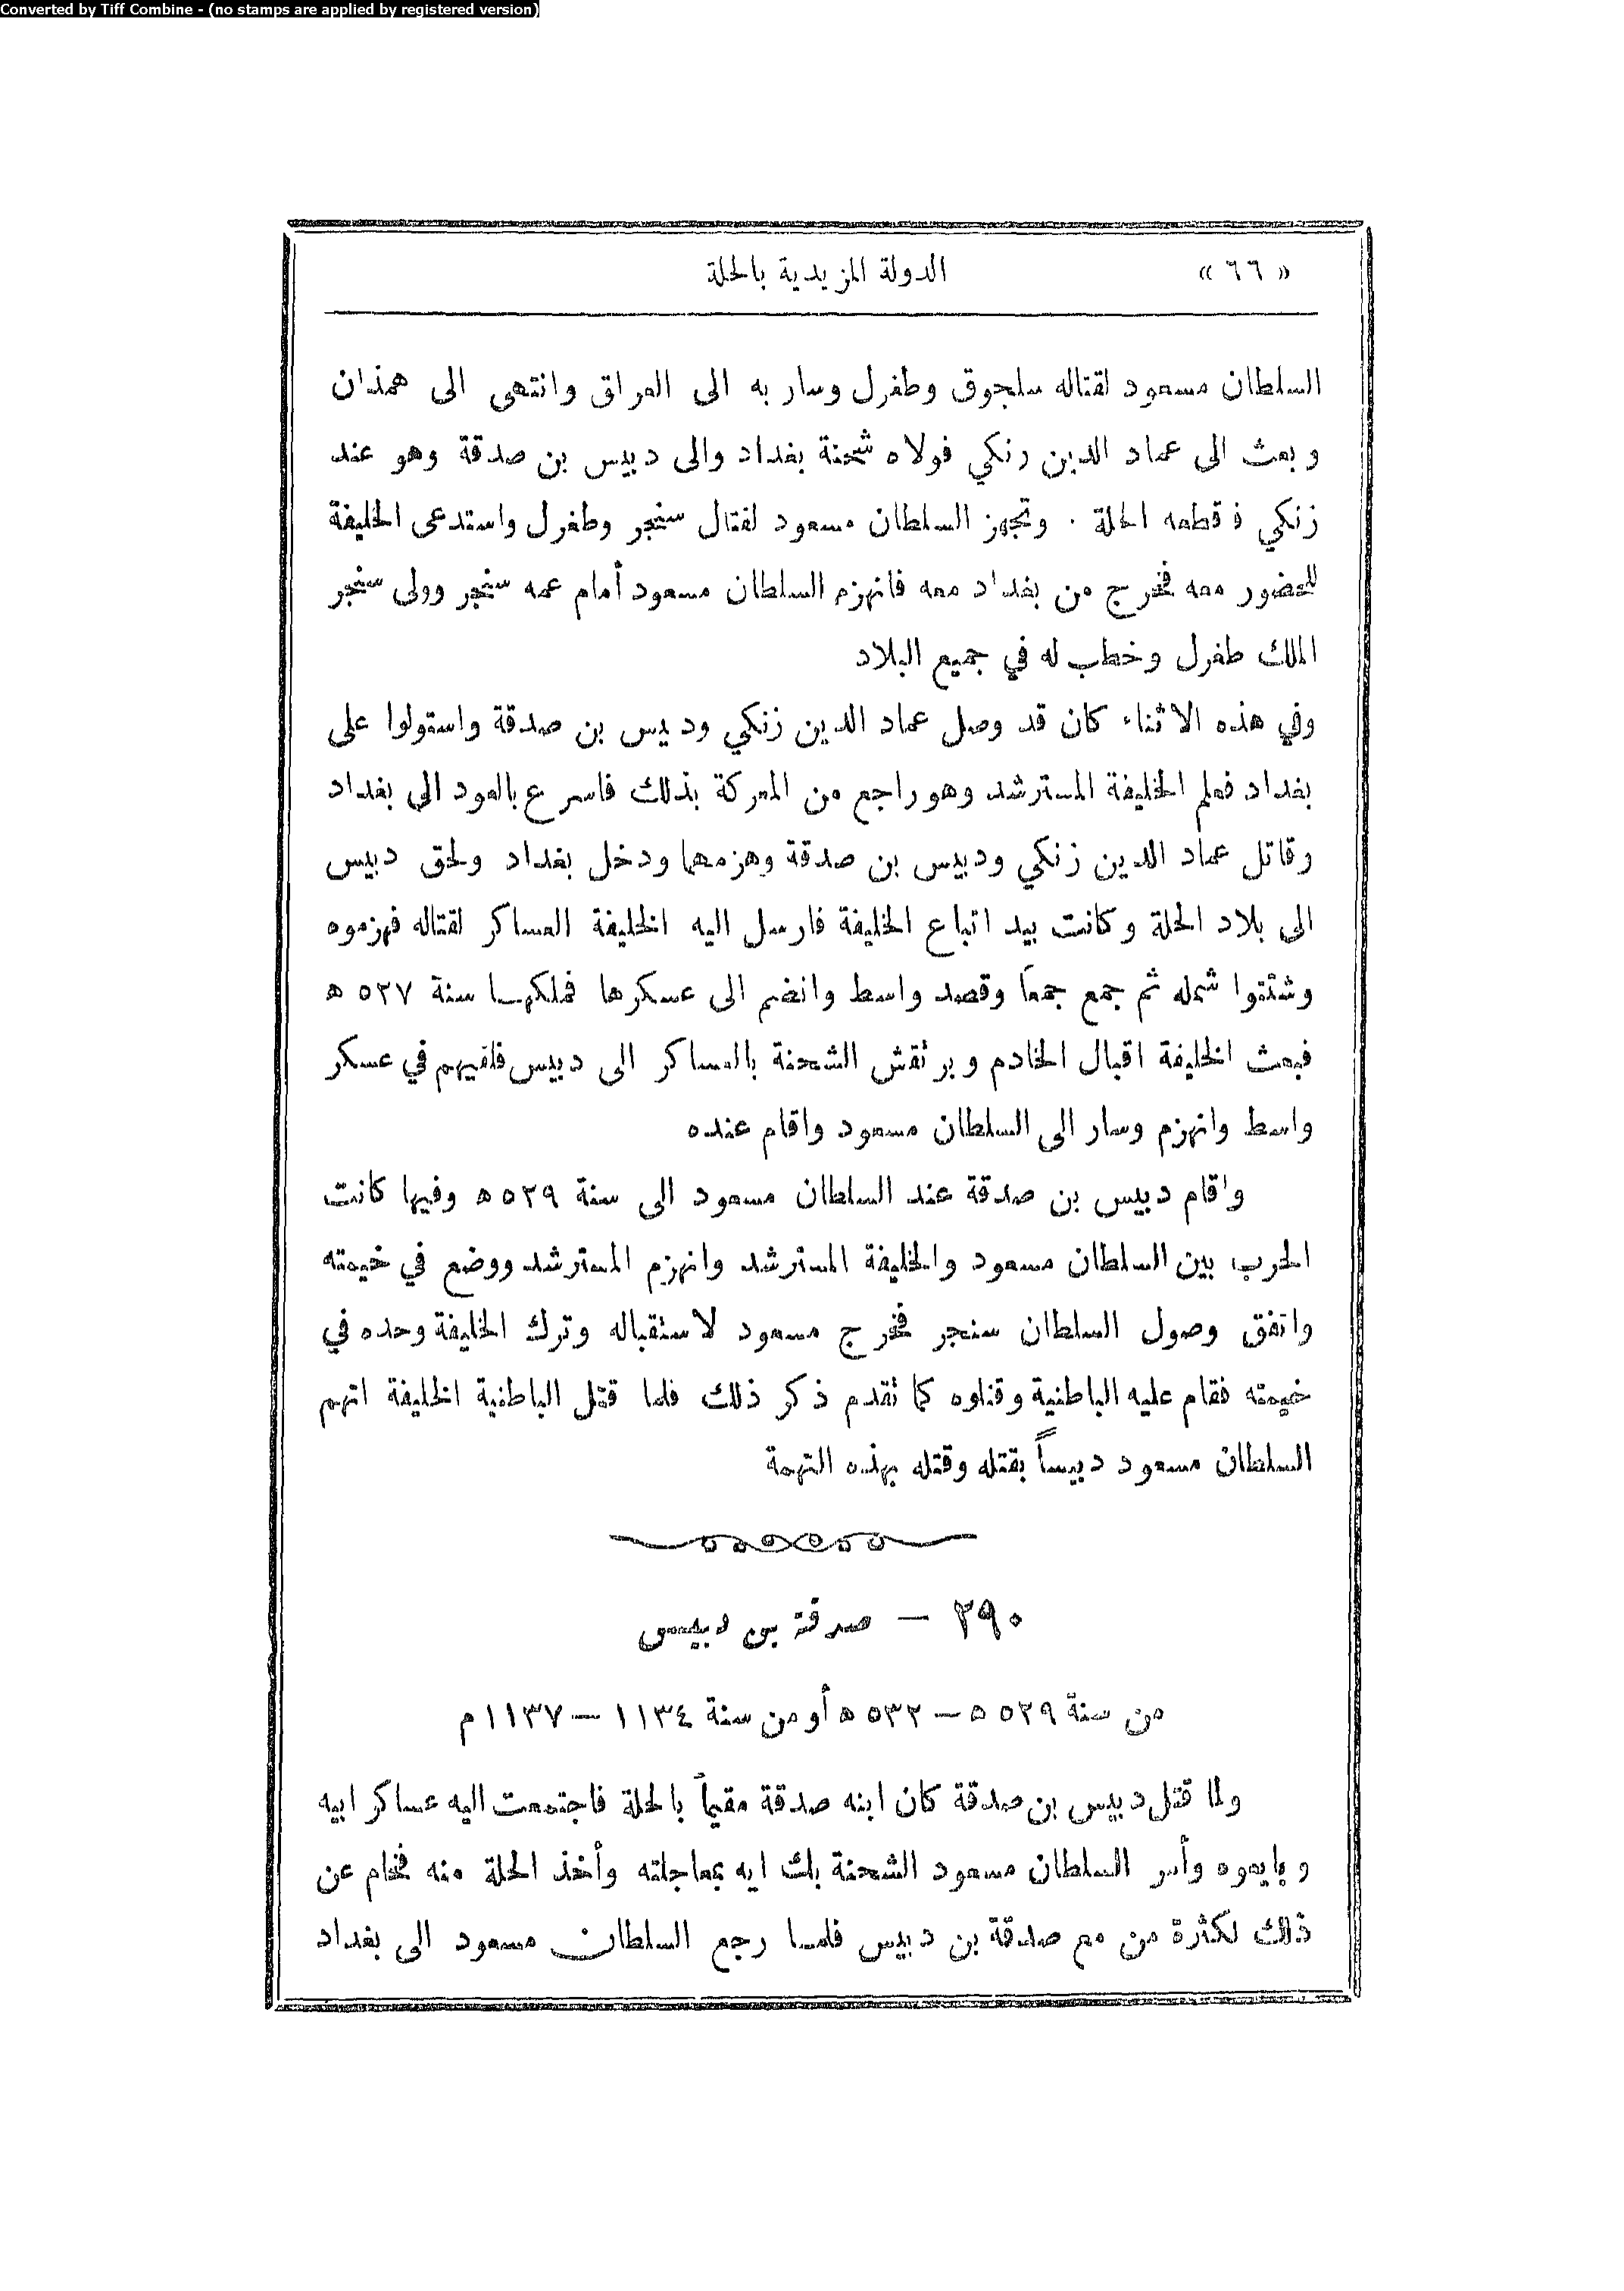 Converted by Tiff Combine - (no stamps are applied by registered version)
« ٦٦ » الدولة المزيدية بالحلة
السلطان مسعود لقتاله سلجوق وطغرل وسار به الى العراق وانتهى الى همذان
وبعث الى عماد الدين زنكي فولاه شحنة بغداد والى دبيس بن صدقة وهو عند
زنكي فاقطعه الحلة . وتجهز السلطان مسعود لقتال سنجر وطغرل واستدعى الخليفة
للحضور معه فخرج من بغداد معه فانهزم السلطان مسعود أمام عمه سنجر وولى سنجر
الملك طغرل وخطب له في جميع البلاد
وفي هذه الاثناء كان قد وصل عماد الدين زنكي ودبيس بن صدقة واستولوا على
بغداد فعلم الخليفة المسترشد وهو راجع من المعركة بذلك فاسرع بالعود الى بغداد
وقاتل عماد الدين زنكي ودبيس بن صدقة وهزمهما ودخل بغداد ولحق دبيس
الى بلاد الحلة وكانت بيد اتباع الخليفة فارسل اليه الخليفة العساكر لقتاله فهزموه
وشتتوا شمله ثم جمع جمعاً وقصد واسط وانضم الى عسكرها فملكها سنة ٥٢٧ ه
فبعث الخليفة اقبال الخادم وبرنقش الشحنة بالعساكر الى دبيس فلقيهم في عسكر
واسط وانهزم وسار الى السلطان مسعود واقام عنده
واقام دبيس بن صدقة عند السلطان مسعود الى سنة ٥٢٩ ه وفيها كانت
الحرب بين السلطان مسعود والخليفة المسترشد وانهزم المسترشد ووضع في خيمته
واتفق وصول السلطان سنجر فخرج مسعود لاستقباله وترك الخليفة وحده في
خيمته فقام عليه الباطنية وقتلوه كما تقدم ذكر ذلك فلما قتل الباطنية الخليفة اتهم
السلطان مسعود دبيساً بقتله وقتله بهذه التهمة
٢٩٠ — صدقة بن دبيس
من سنة ٥٢٩ ه — ٥٣٢ ه أو من سنة ١١٣٤ — ١١٣٧ م
ولما قتل دبيس بن صدقة كان ابنه صدقة مقيماً بالحلة فاجتمعت اليه عساكر ابيه
وبايعوه وأمر السلطان مسعود الشحنة بك ابه بمعاجلته وأخذ الحلة منه فخام عن
ذلك لكثرة من مع صدقة بن دبيس فلما رجع السلطان مسعود الى بغداد